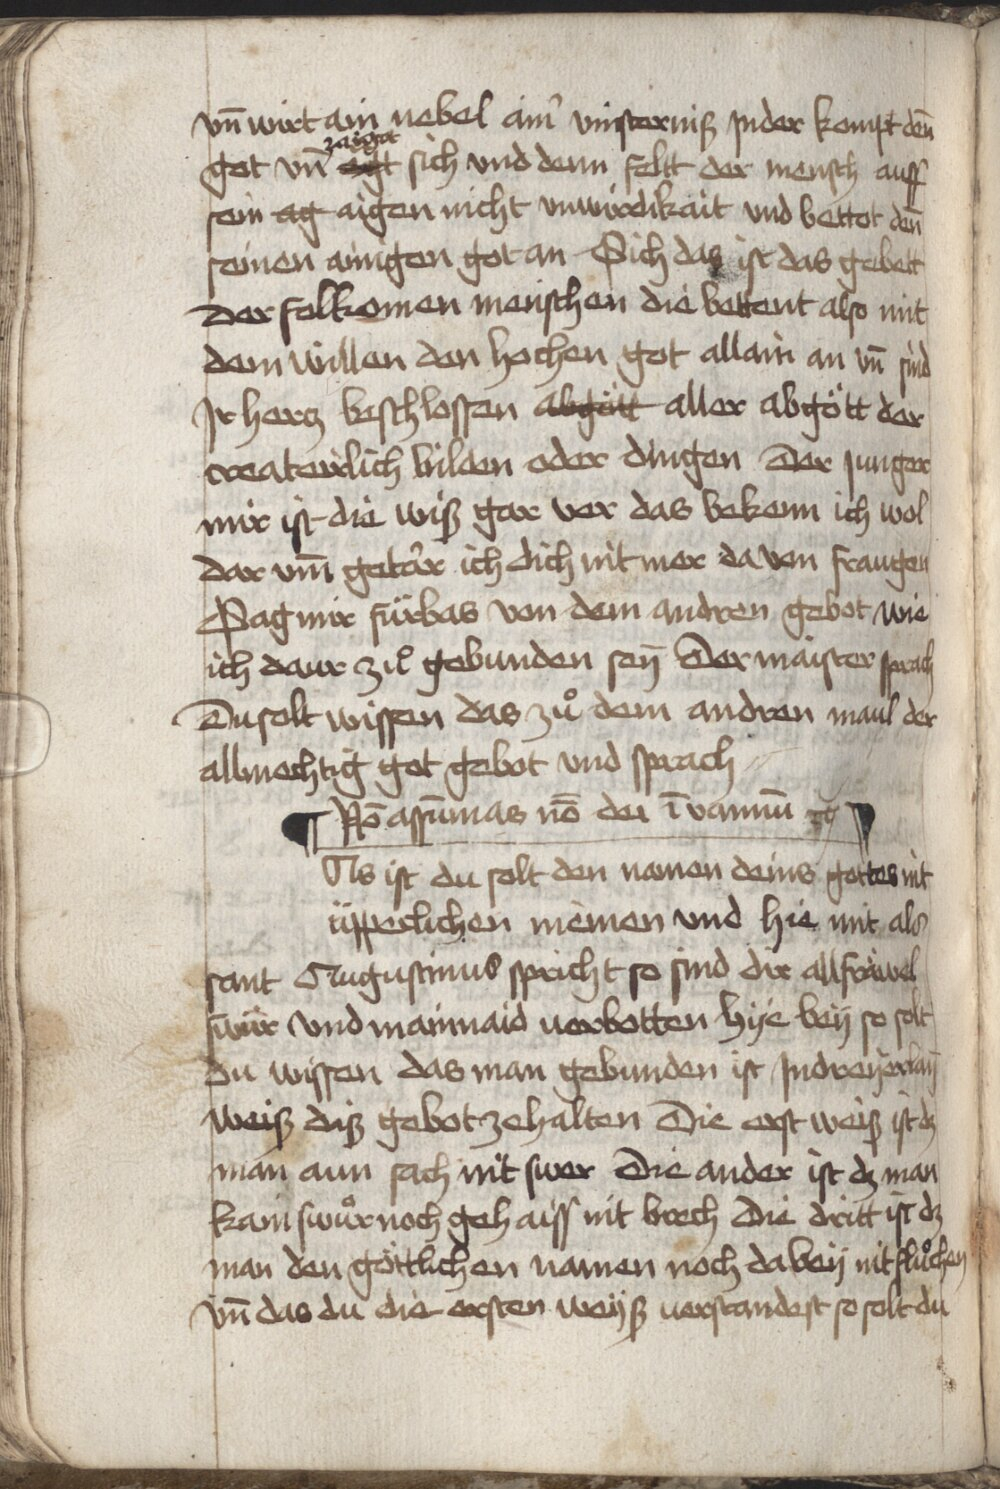 vn̄ wirt ain nebel ainˀ vinsterniß Inder kompt deñ
got vn̄ zaiget sich und denn felt der mensch auff
sein ag aigen nicht unwirdikait und bettot deñ
seinen ainigen got an Sich das ist das gebett
Der folkomen menschen die bettent also mit
dem willen den hochen got allain an vn̄ sind
Ir hercz beschlossen abgött aller abgött der
createrlich bilden oder dingen Der Junger
mir ist die wiß gar ver das bekenn ich wol
dar vm̄ getar ich dich nit mer da von fraugen
Sag mir fürbas von dem andren gebot wie
ich daur zů gebunden seÿ Der maister sprach
Du solt wissen das zů dem andren maul der
allmechtig got gebot und sprach
Nō assūmas nō dei ī vanum̄
Das ist du solt den namen deins gottes nit
üppeclichen niemen und hie mit als
sant Augustinus spricht so sind dir all fräwel
swür und mainnaid verbotten hÿe beÿ so solt
du wissen das man gebunden ist In dreÿerlaÿ
weiß diß gebot ze halten Die erst weiß ist dz
man aun sach nit swer Die ander ist dz man
kain swůr noch gehaiss nit brech Die dritt ist dz
man den göttlichen namen noch da beÿ nit flůchen
vn̄ das du die ersten weÿß verstandest so solt du